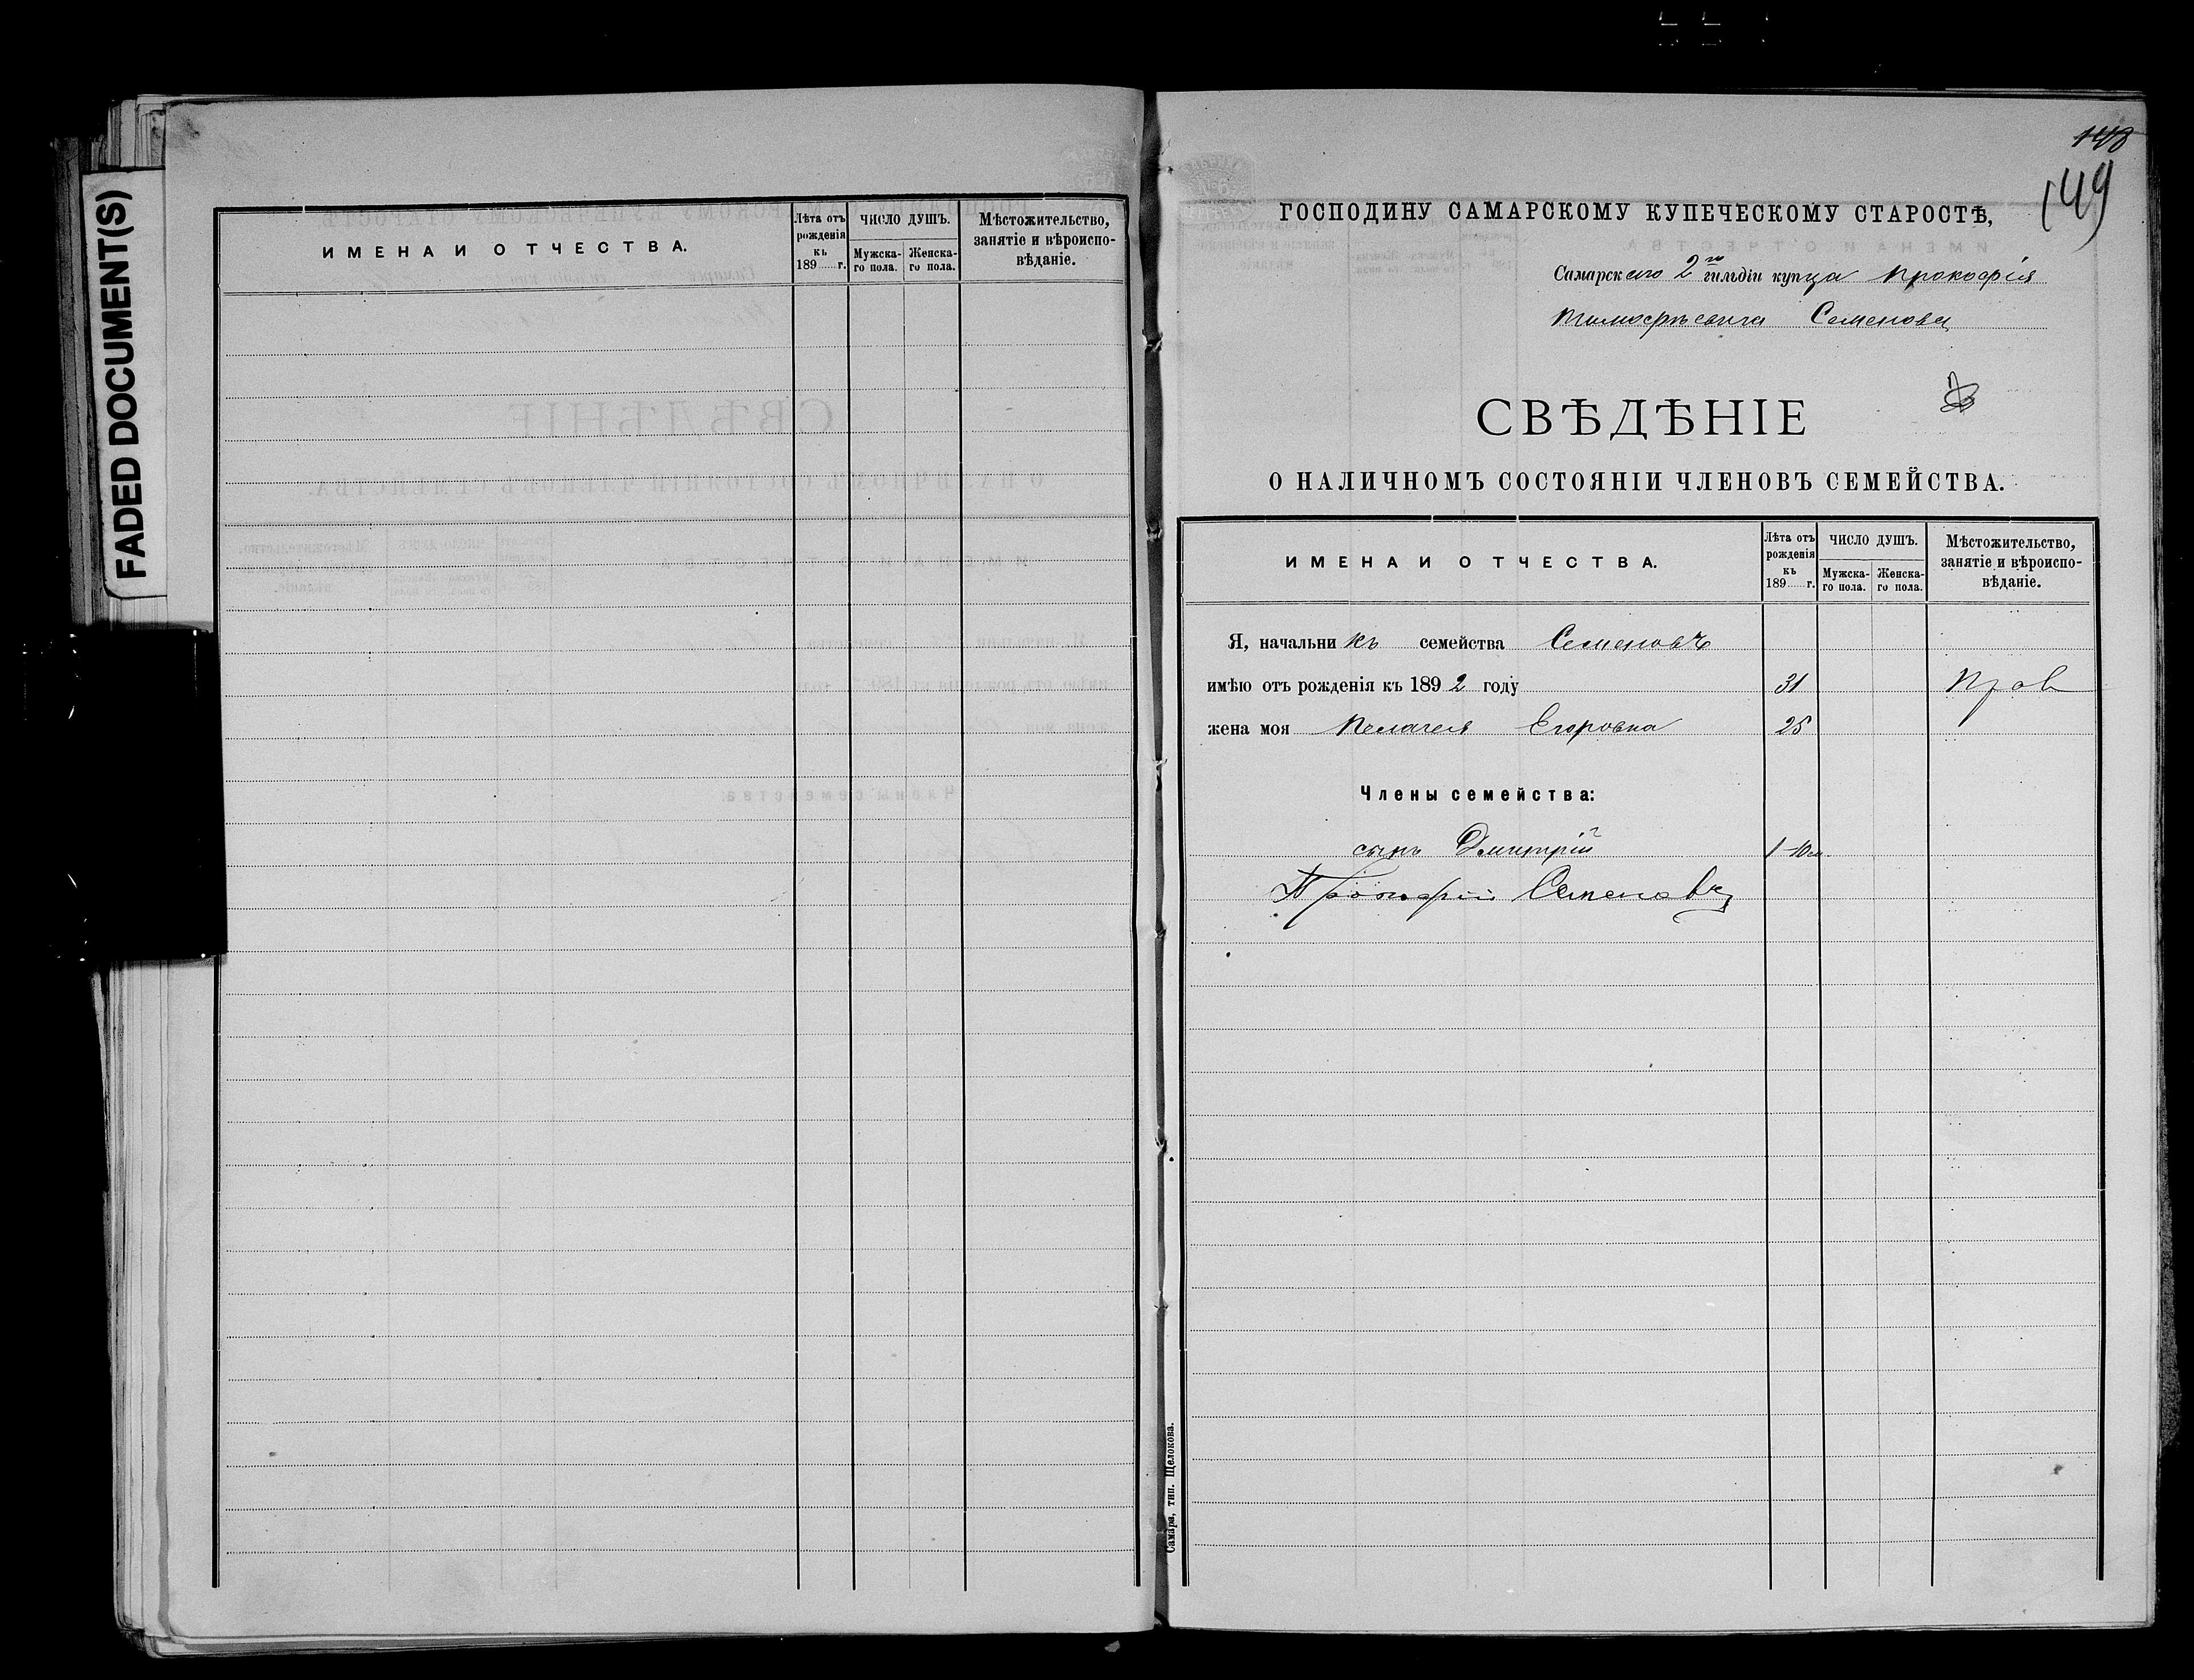 FADED DOCUMENT(S)
ИМЕНА И ОТЧЕСТВА.
Лѣта отъ рожденія къ 189 г.
ЧИСЛО ДУШЪ.
Мужска-го пола.
Женска-го пола.
Мѣстожительство, занятіе и вѣроиспо-вѣданіе.
148
149
ГОСПОДИНУ САМАРСКОМУ КУПЕЧЕСКОМУ СТАРОСТѢ,
Самарскаго 2го гильдіи купца Прокофія
Тимофѣевича Семенова
СВѢДѢНІЕ
О НАЛИЧНОМЪ СОСТОЯНІИ ЧЛЕНОВЪ СЕМЕЙСТВА.
ИМЕНА И ОТЧЕСТВА.
Лѣта отъ рожденія къ 189 г.
ЧИСЛО ДУШЪ.
Мужска-го пола.
Женска-го пола.
Мѣстожительство, занятіе и вѣроиспо-вѣданіе.
Я, начальникъ семейства Семеновъ
имѣю отъ рожденія къ 1892 году 31 Прав
жена моя Пелагея Егоровна 25
Члены семейства:
сынъ Дмитрій 1-10 м.
Прокофій Семеновъ
Самара, тип. Щелокова.